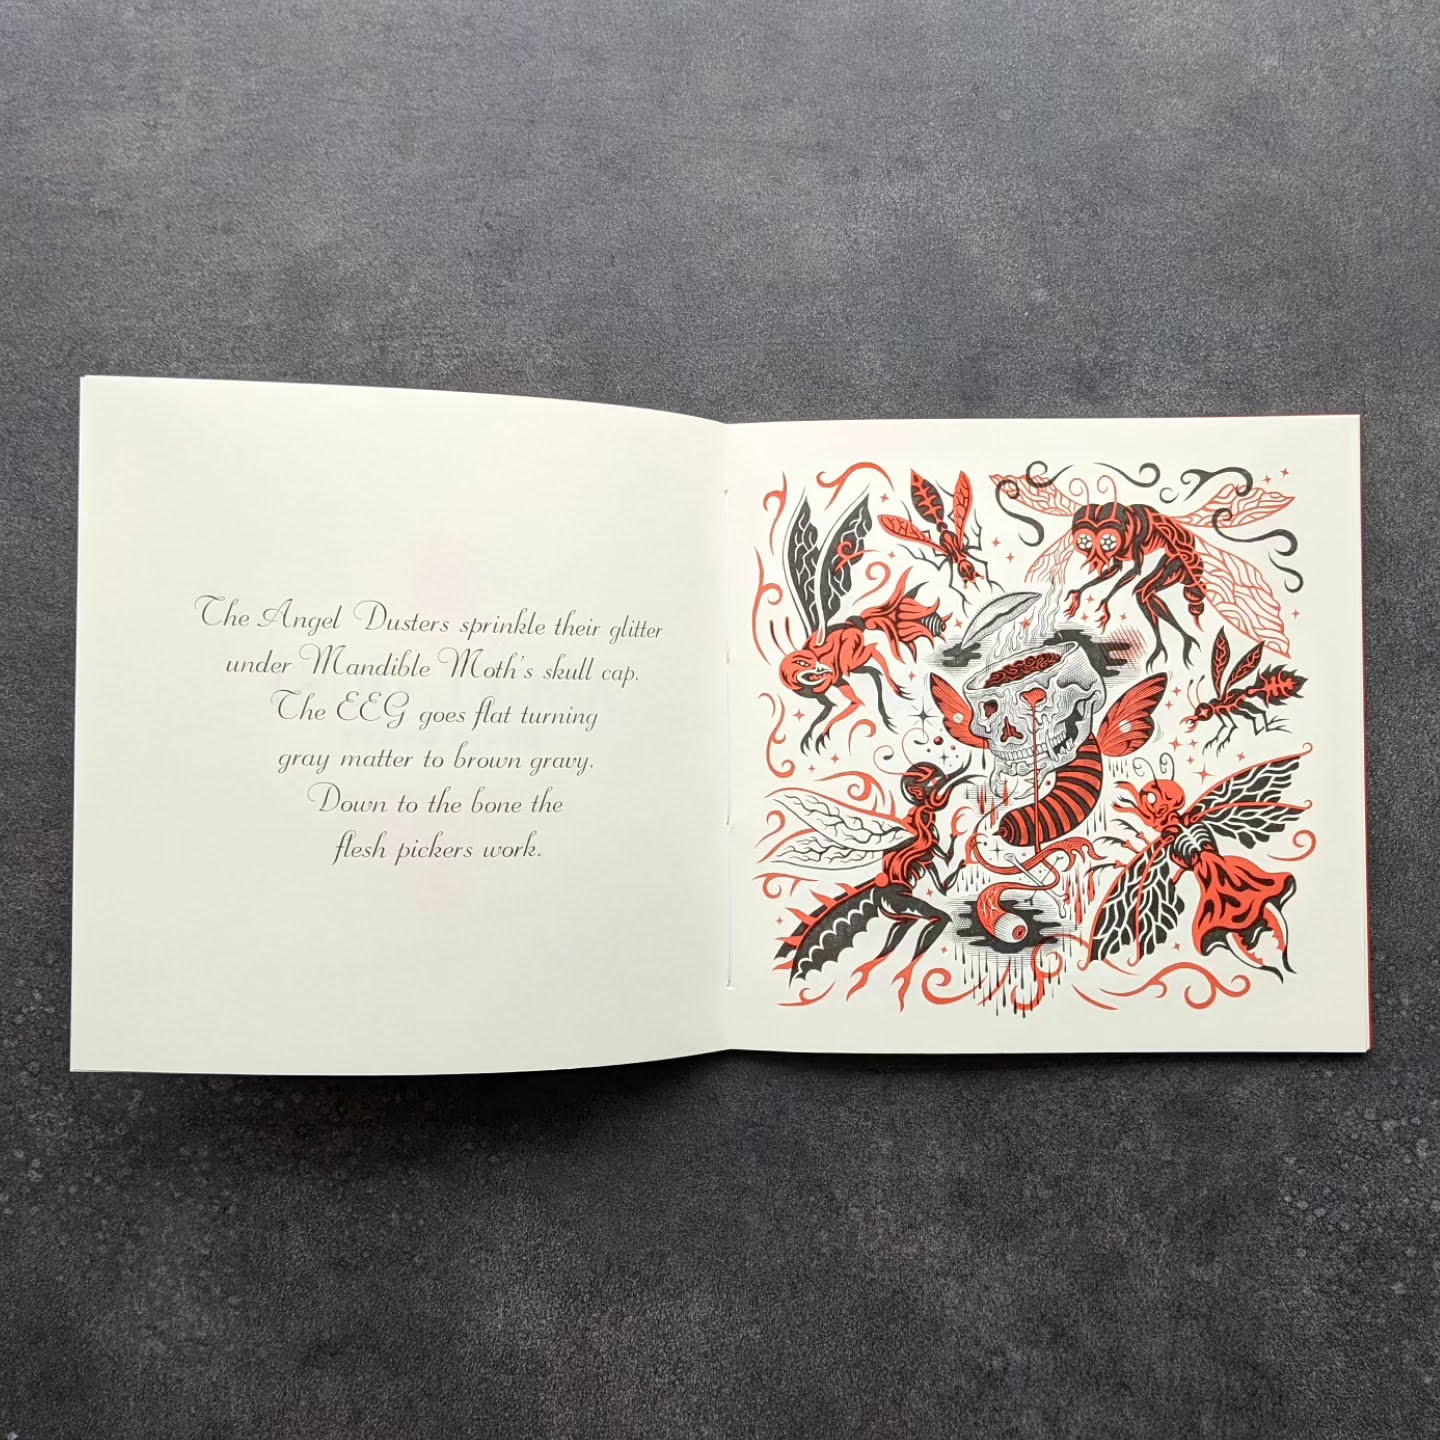 The Angel Dusters sprinkle their glitter
under Mandible Moth's skull cap.
The EEG goes flat turning
gray matter to brown gravy.
Down to the bone the
flesh pickers work.